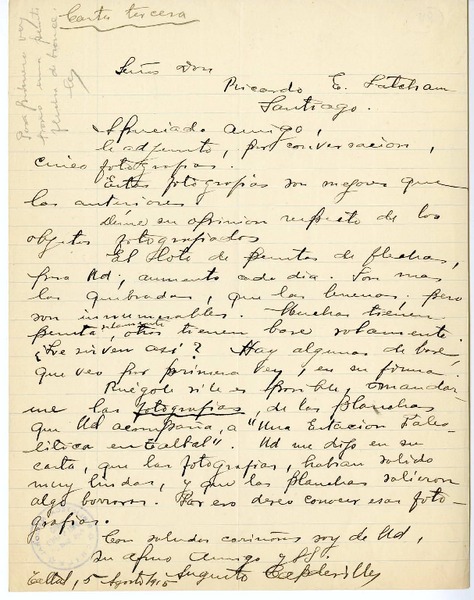 Carta tercera
Por primera vez
Señor Don
Ricardo E. Latcham
Santiago.
Apreciado amigo,
le adjunto, por conversacion,
cinco fotografias.
Estas fotografias son mejores que
las anteriores.
Déme su opinion respecto de los
objetos fotografiados
El lote de puntas de flechas,
para Ud, aumenta cada dia. Son mas
las quebradas, que las buenas; pero
son innumerables. Muchas tienen
punta solamente, otras tienen base solamente.
¿Le sirven así? Hay algunas de base,
que veo por primera vez, en su forma.
Ruégole si le es posible, mandar-
me las fotografias, de las planchas
que Ud acompaña, a "Una Estacion Paleo-
litica en Taltal". Ud me dijo en su
carta, que las fotografias, habian salido
muy lindas, y que las planchas salieron
algo borrosas. Por eso deseo conocer esas foto-
grafias.
Con saludos cariñosos soy de Ud,
su afmo Amigo y SS.
Taltal, 5 Agosto 915 Augusto Capdeville